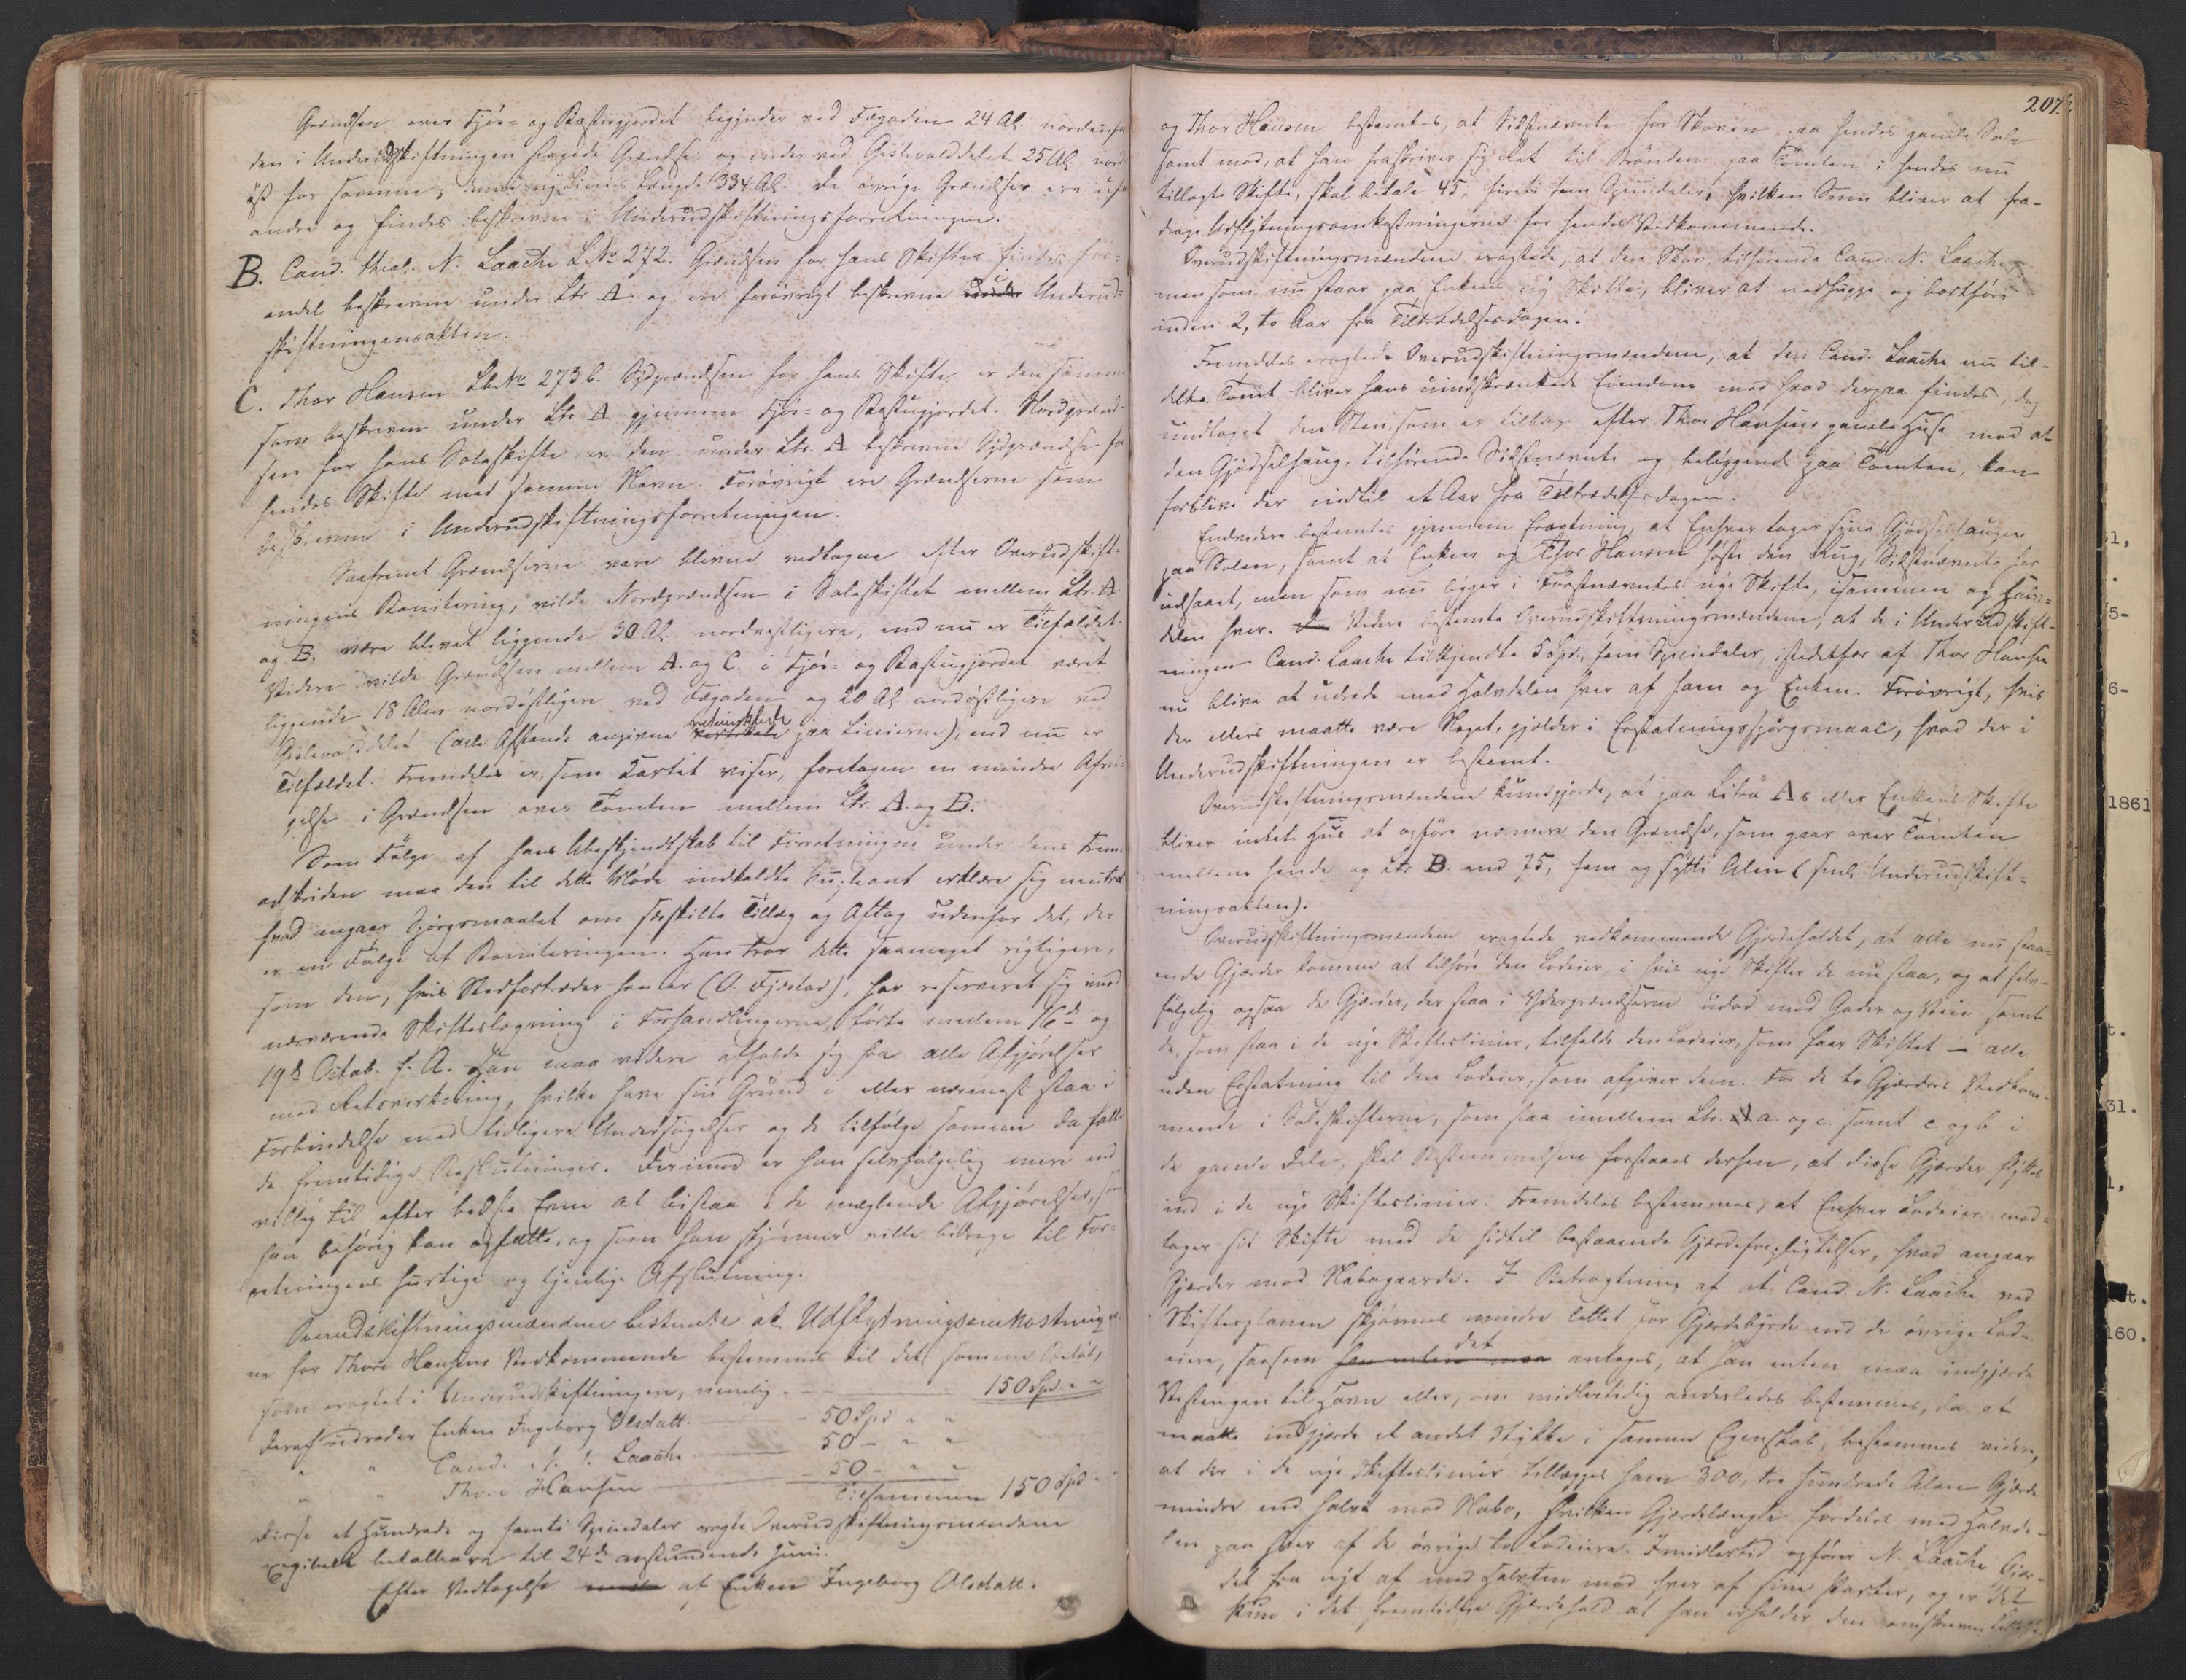 Grændsen over Fjøs- og Bastugjordet begynder ved Fægaden 24 Al. nordenfor
den i Underudskiftningen foregede Grændse og ender ved Gislevolddelet 25 Al. nord
øst for samme; Linies Længde 334 Al. De øvrige Grændser ere ufor
andre og findes beskrevne i Underudskiftningsforretningen.
B. Cand. theol. N. Laache LNo 272. Grændsen for hans Skifter findes for-
endel beskrevne under Ltr. A. og ere forøvrigt beskrevne i Underud-
skiftningensakten.
C. Thor Hansen LbNo 273 b. Sydgrændsen for hans Skifte er den samme
som beskreven under Ltr. A gjennem Fjøs- og Bastugjordet. Nordgrænd-
sen for hans Soleskifte er den under Ltr. A beskrevne Sydgrændse for
hendes Skifte med samme Navn. Forøvrigt ere Grændserne som
beskreven i Underudskiftningsforretningen.
Saafremt Grændserne vare blevne vedtagne efter Overudskift-
ningens Bonitering, vilde Nordgrændsen i Soleskiftet mellem Ltr. A
og B. være blevet liggende 30 Al. nordvestligere, end nu er Tilfældet.
Videre vilde Grændsen mellem A. og C. i Fjøs- og Bastugjordet været
liggende 18 Alen nordøstligere ved Fægaden og 20 Al nordøstligere ved
Gislevolddelet (alle Afstande angivne vertikale retvinklede paa Linierne), end nu er
Tilfældet. Fremdeles er, som Kartet viser, foretagen en mindre Afvi-
gelse i Grændsen over Tomten mellem Ltr. A. og B.
Som Følge af hans Ubekjendtskab til Forretningen under dens Frem-
adskriden maa den til dette Møde indkaldte Supleant erklære sig neutral
hvad angaar Spørgsmaalet om særskilte Tillæg og Aftag udenfor det, der
er en Følge af Boniteringen. Han tror dette saameget rigtigere,
som den, hvis Stedfortræder han er (O. Fjestad), har reserveret sig imod
nærværende Skifteslægning i Forhandlingerne, førte mellem 16de og
19de Octob. f. A. Han maa videre afholde sig fra alle Afgjørelser
med Retsvirkning, hvilke have sin Grund i eller nærmest staa i
Forbindelse med tidligere Undersøgelser og de tilfølge samme da fatte-
de fremtidige Beslutninger. Derimod er han selvfølgelig mere end
villig til efter bedste Evne at bistaa i de mæglende Afgjørelser, som
han behørig kan opfatte, og som han skjønner ville bidrage til For-
retningens hurtige og tjenlige Afslutning.
Overudskiftningsmændene bestemte at Udflytningsomkostninger-
ne for Thore Hansens Vedkommende bestemmes til det samme Beløb,
som eragtet i Underudskiftningen, nemlig 150 Spd " "
deraf udreder Enken Ingeborg Olsdatt. 50 Spd " "
" " Cand. N. Laache 50 - " "
" " Thore Hansen 50 - " "
Tilsammen 150 Spd "
Disse et Hundrede og femti Speciedaler eragte Overudskiftningsmændene
exigibelt betalbare til 24de anstundende Juni.
Efter Vedtagelse af Enken Ingeborg Olsdatt.
207.
og Thor Hansen bestemtes, at Sidstnævnte for Skoven paa hendes gamle Sole
samt mod, at han fraskriver sig Ret til Brønden paa Tomten i hendes nu
tillagte Skifte, skal betale 45, firti fem Speciedaler, hvilken Sum bliver at fra-
drage Udflytningsomkostningerne for hendes Vedkommende.
Overudskiftningsmændene eragtede, at den Skov, tilhørende Cand. N. Laache,
men som nu staar paa Enkens ny Skifte, bliver at nedhugge og bortføre
inden 2, to Aar fra Tiltrædelsesdagen.
Fremdeles eragtede Overudskiftningsmændene, at den Cand. Laache nu til-
delte Tomt bliver hans uindskrænkede Eiendom med hvad derpaa findes, dog
undtaget den Sten, som er tilbage efter Thor Hansens gamle Huse med at
den Gjødselhaug, tilhørende Sidstnævnte og beliggende paa Tomten, kan
forblive der indtil et Aar fra Tiltrædelsesdagen.
Endvidere bestemtes gjennem Eragtning, at Enhver tager sine Gjødselhauger
paa Solen, samt at Enken og Thor Hansen høste den Rug, Sidstnævnte har
udsaaet, men som nu ligger i Førstnævntes nye Skifte, isammen og Halv-
delen hver. Videre bestemte Overudskiftningsmændene, at de i Underudskift-
ningen Cand. Laache tilkjendte 5 Spd., fem Speciedaler, istedetfor af Thor Hansen
nu blive at udrede med Halvdelen hver af ham og Enken. Forøvrigt, hvis
der ellers maatte være Noget, gjælder i Erstatningsspørgsmaal, hvad der i
Underudskiftningen er bestemt.
Overudskiftningsmændene kundgjorde, at paa Litra As eller Enkens Skifte
bliver intet Hus at opføre nærmere den Grændse, som gaar over Tomten
mellem hende og Ltr B. end 75, fem og sytti Alen (smlg Underudskift-
ningsakten).
Overudskiftningsmændene eragtede vedkommende Gjærdeholdet, at alle nu staa-
ende Gjærder komme at tilhøre den Lodeier, i hvis nye Skifter de nu staa, og at selv-
følgelig ogsaa de Gjærder, der staa i Ydergrændserne udad med Gader og Veie samt
de, som staa i de nye Skifteslinier, tilfalde den Lodeier, som faar Skiftet — alle
uden Erstatning til den Lodeier, som afgiver dem. For de to Gjærders Vedkom-
mende i Soleskifterne, som staa imellem Ltr. a. og c. samt c og b i
de gamle Dele, skal Bestemmelsen forstaaes derhen, at disse Gjærder flyttes
ind i de nye Skifteslinier. Fremdeles bestemmes, at Enhver Lodeier mod-
tager sit Skifte med de hidtil bestaaende Gjærdeforpligtelser, hvad angaar
Gjærder mod Nabogaarde. I Betragtning af at Cand. N. Laache ved
Skiftesplanen skjønnes mindre lettet for Gjærdebyrde end de øvrige Lod-
eiere, saasom han enten maa det antages, at han enten maa indgjærde
Vestengen til Havn eller, om midlertidig anderledes bestemmes, da at
maatte indgjærde et andet Stykke i samme Egenskab, bestemmes videre,
at der i de nye Skifteslinier tillægges ham 300, tre hundrede Alen Gjærde
mindre end halvt mod Nabo, hvilken Gjærdelængde fordeles med Halvde-
len paa hver af de øvrige to Lodeiere. Imidlertid opfører N. Laache Gjær-
det fra nyt af med Halvten mod hver af sine Parter, og er det
kun i det fremtidige Gjærdehold at han erholder den omskrevne
1861